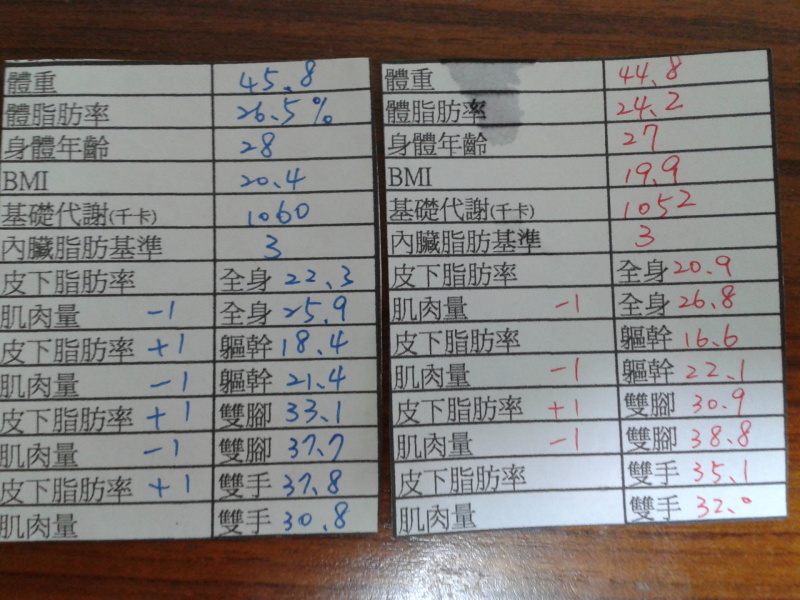 體重 45.8
體脂肪率 26.5%
身體年齡 28
BMI 20.4
基礎代謝(千卡) 1060
內臟脂肪基準 3
皮下脂肪率 全身 22.3
肌肉量 -1 全身 25.9
皮下脂肪率 +1 軀幹 18.4
肌肉量 -1 軀幹 21.4
皮下脂肪率 +1 雙腳 33.1
肌肉量 -1 雙腳 37.7
皮下脂肪率 +1 雙手 37.8
肌肉量 雙手 30.8
體重 44.8
體脂肪率 24.2
身體年齡 27
BMI 19.9
基礎代謝(千卡) 1052
內臟脂肪基準 3
皮下脂肪率 全身 20.9
肌肉量 -1 全身 26.8
皮下脂肪率 軀幹 16.6
肌肉量 -1 軀幹 22.1
皮下脂肪率 +1 雙腳 30.9
肌肉量 -1 雙腳 38.8
皮下脂肪率 雙手 35.1
肌肉量 雙手 32.0